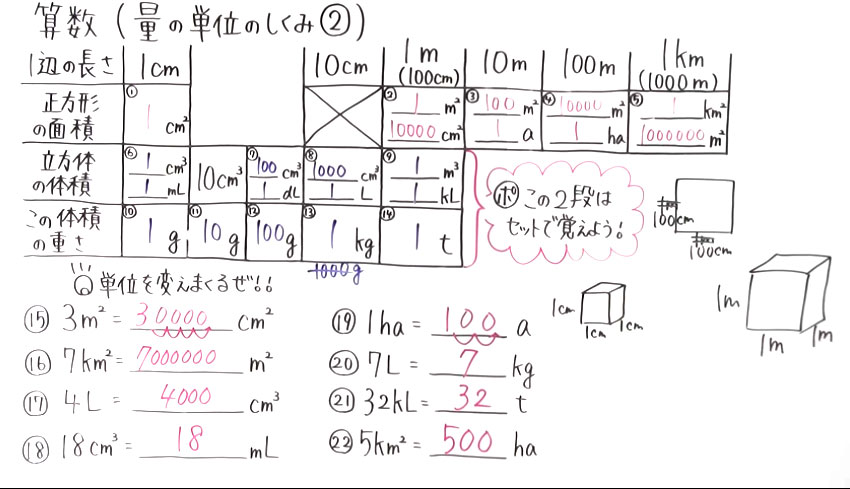 算数 (量の単位のしくみ②)
1辺の長さ 1cm 10cm 1m (100cm) 10m 100m 1km (1000m)
正方形の面積 ① 1 cm² ② 1 m² 10000 cm² ③ 100 m² 1 a ④ 10000 m² 1 ha ⑤ 1 km² 1000000 m²
立方体の体積 ⑥ 1 cm³ 1 mL 10cm³ ⑦ 100 cm³ 1 dL ⑧ 1000 cm³ 1 L ⑨ 1 m³ 1 kL
この体積の重さ ⑩ 1 g ⑪ 10 g ⑫ 100 g ⑬ 1 kg ⑭ 1 t
1000g
ポ この2段は
セットで覚えよう!
100cm
100cm
単位を変えまくるぜ!!
⑮ 3m² = 30000 cm²
⑯ 7km² = 7000000 m²
⑰ 4L = 4000 cm³
⑱ 18cm³ = 18 mL
⑲ 1ha = 100 a
⑳ 7L = 7 kg
㉑ 32kL = 32 t
㉒ 5km² = 500 ha
1cm
1cm
1cm
1m
1m
1m